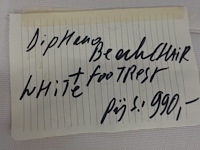 Diphano
Beach CHAIR
+ FOOTREST
WHITE
Prijs: 990,-